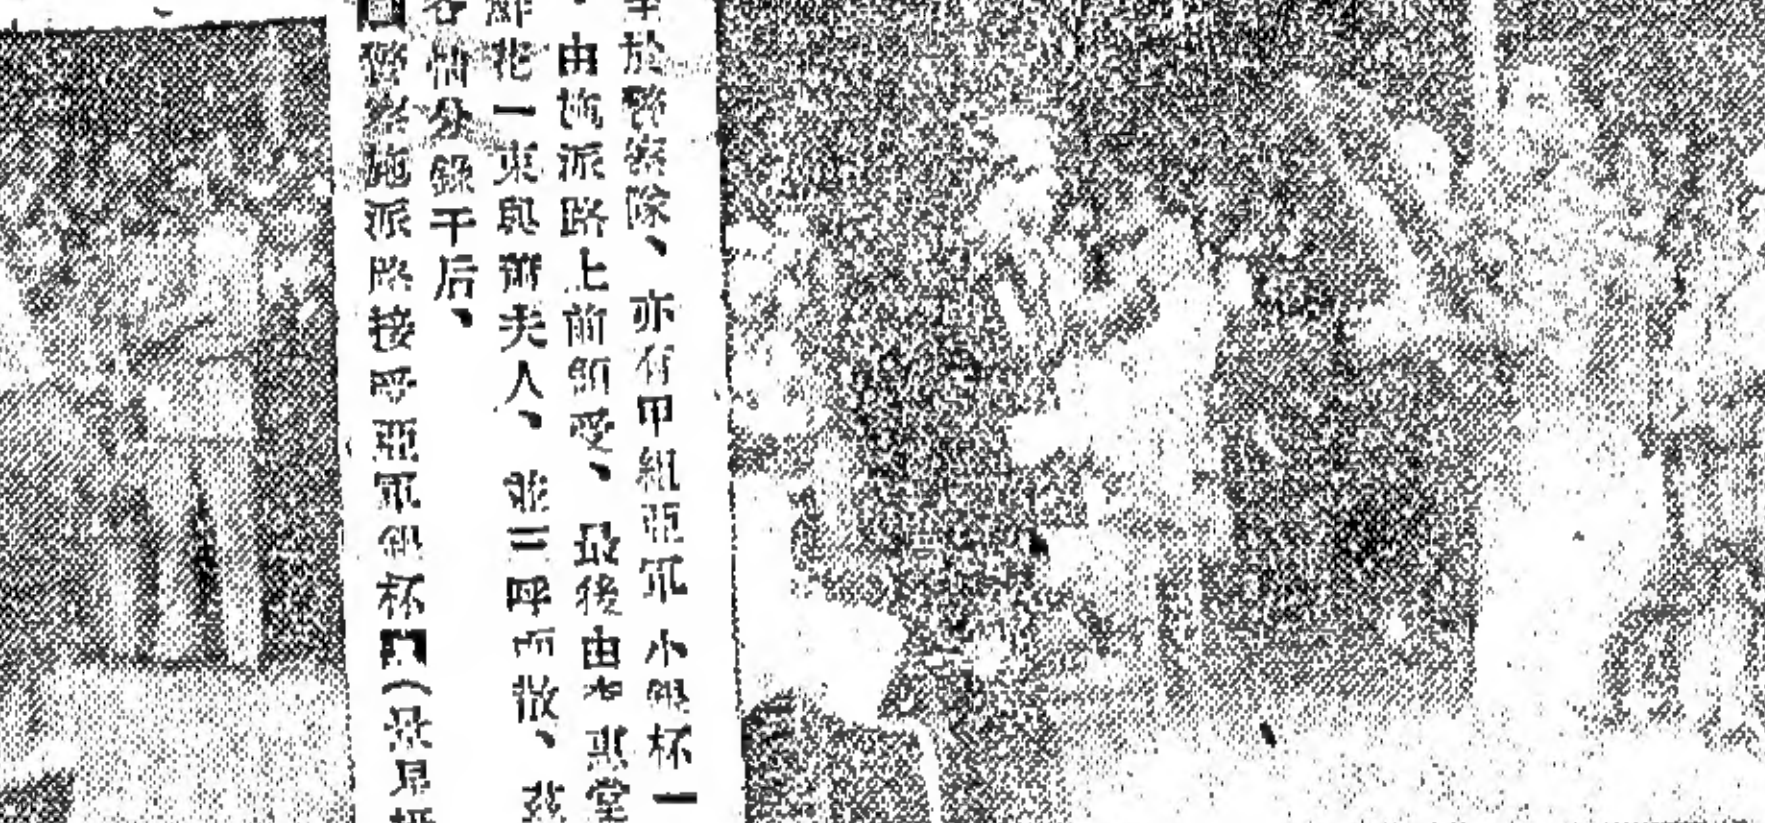 至於警察隊、亦有甲組亞軍小銀杯一
、由施派路上前領受、最後由李惠堂
鮮花一束與爾夫人、並三呼而散、茲
各情分錄于后、
圖警察施派路接呼亞軍銀杯(景星攝